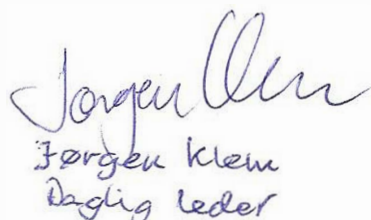 Jørgen Klem
Jørgen Klem
Daglig leder